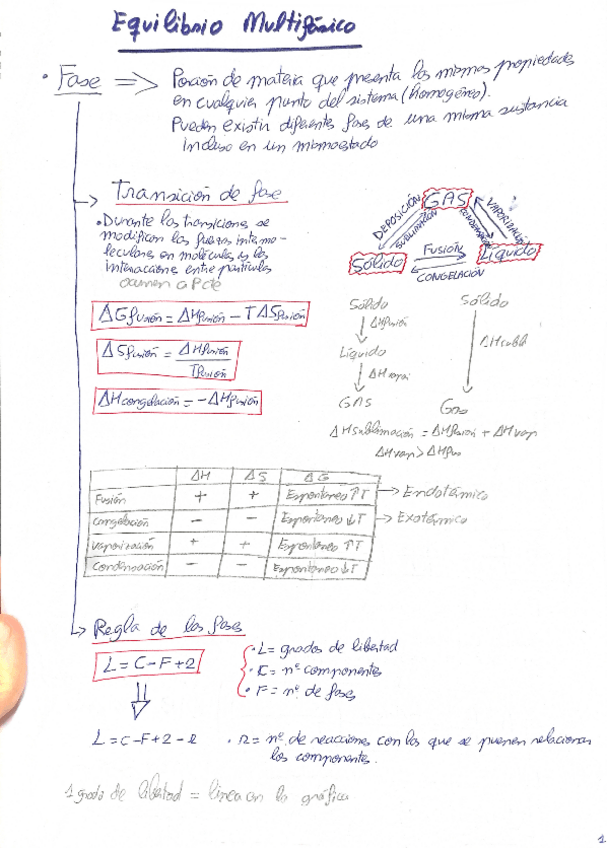 Equilibrio Multifásico
• Fase => Porción de materia que presenta las mismas propiedades
en cualquier punto del sistema (homogéneo).
Pueden existir diferentes fases de una misma sustancia
incluso en un mismo estado
Transición de fase
• Durante las transiciones se
modifican las fuerzas intermo-
leculares en moléculas y las
interacciones entre partículas
Ocurren a P cte
ΔGfusión = ΔHfusión - TΔSfusión
ΔSfusión = ΔHfusión
Tfusión
ΔHcongelación = -ΔHfusión
GAS
DEPOSICIÓN
SUBLIMACIÓN
CONDENSACIÓN
VAPORIZACIÓN
Sólido
FUSIÓN
CONGELACIÓN
Líquido
Sólido
↓ ΔHfusión
Líquido
↓ ΔHvapo
GAS
Sólido
↓ ΔHsubl
Gas
ΔHsublimación = ΔHfusión + ΔHvap
ΔHvap > ΔHfus
ΔH ΔS ΔG
Fusión + + Espontaneo ↑T → Endotérmico
Congelación - - Espontaneo ↓T → Exotérmico
Vaporización + + Espontaneo ↑T
Condensación - - Espontaneo ↓T
Regla de las fases
L = C - F + 2
• L = grados de libertad
• C = nº componentes
• F = nº de fases
L = C - F + 2 - r • r = nº de reacciones con las que se pueden relacionar
los componentes.
1 grado de libertad = linea en la gráfica
1